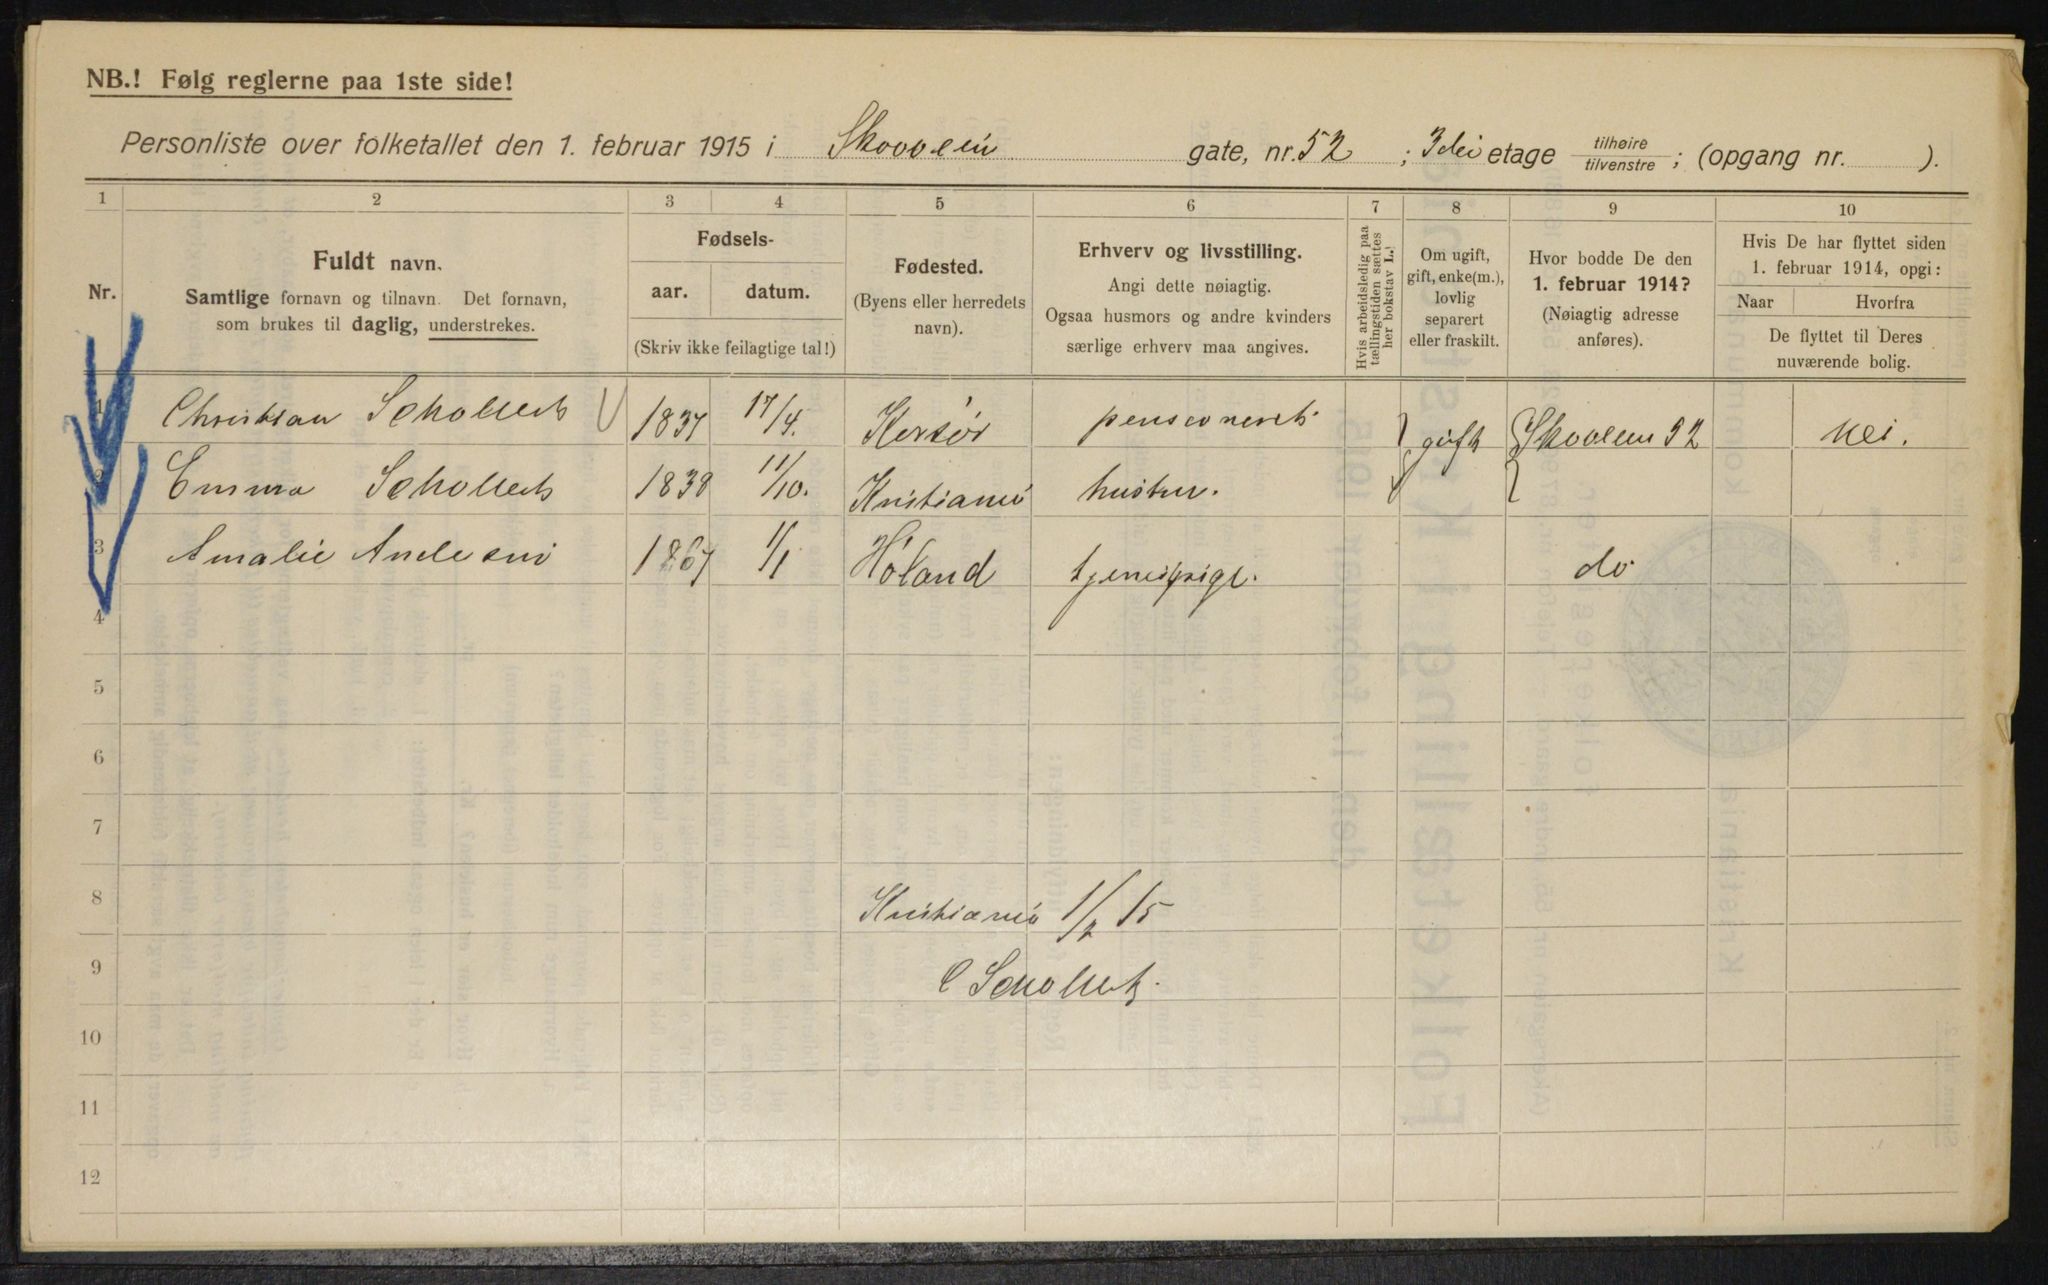 NB.! Følg reglerne paa 1ste side!
Personliste over folketallet den 1. februar 1915 i Skovvein gate, nr. 52 ; 3die etage tilhøire tilvenstre ; (opgang nr. ).
1 2 3 4 5 6 7 8 9 10
Nr.
Fuldt navn.
Samtlige fornavn og tilnavn. Det fornavn,
som brukes til daglig, understrekes.
Fødsels-
aar. datum.
(Skriv ikke feilagtige tal!)
Fødested.
(Byens eller herredets
navn).
Erhverv og livsstilling.
Angi dette nøiagtig.
Ogsaa husmors og andre kvinders
særlige erhverv maa angives.
Hvis arbeidsledig paa
tællingstiden sættes
her bokstav L.
Om ugift,
gift, enke(m.),
lovlig
separert
eller fraskilt.
Hvor bodde De den
1. februar 1914?
(Nøiagtig adresse
anføres).
Hvis De har flyttet siden
1. februar 1914, opgi:
Naar Hvorfra
De flyttet til Deres
nuværende bolig.
1 Christian Schollert 1837 17/4. pensioneret gift Skovvein 52 nei.
2 Emma Schollert 1838 11/10. Kristiania hustru.
3 Amalie Andersen 1867 1/1 Høland tjenestpige. do
4
5
6
7
8 Kristiania 1/2 15
9 C Schollert.
10
11
12